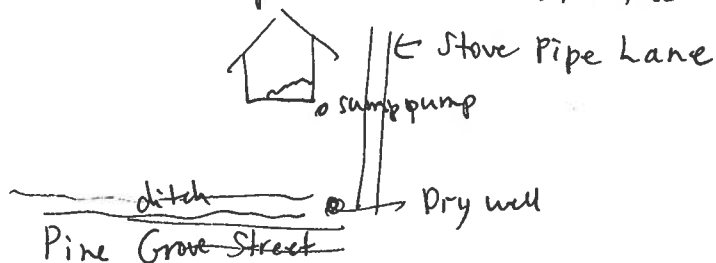 Stove Pipe Lane
sump pump
ditch
Dry well
Pine Grove Street